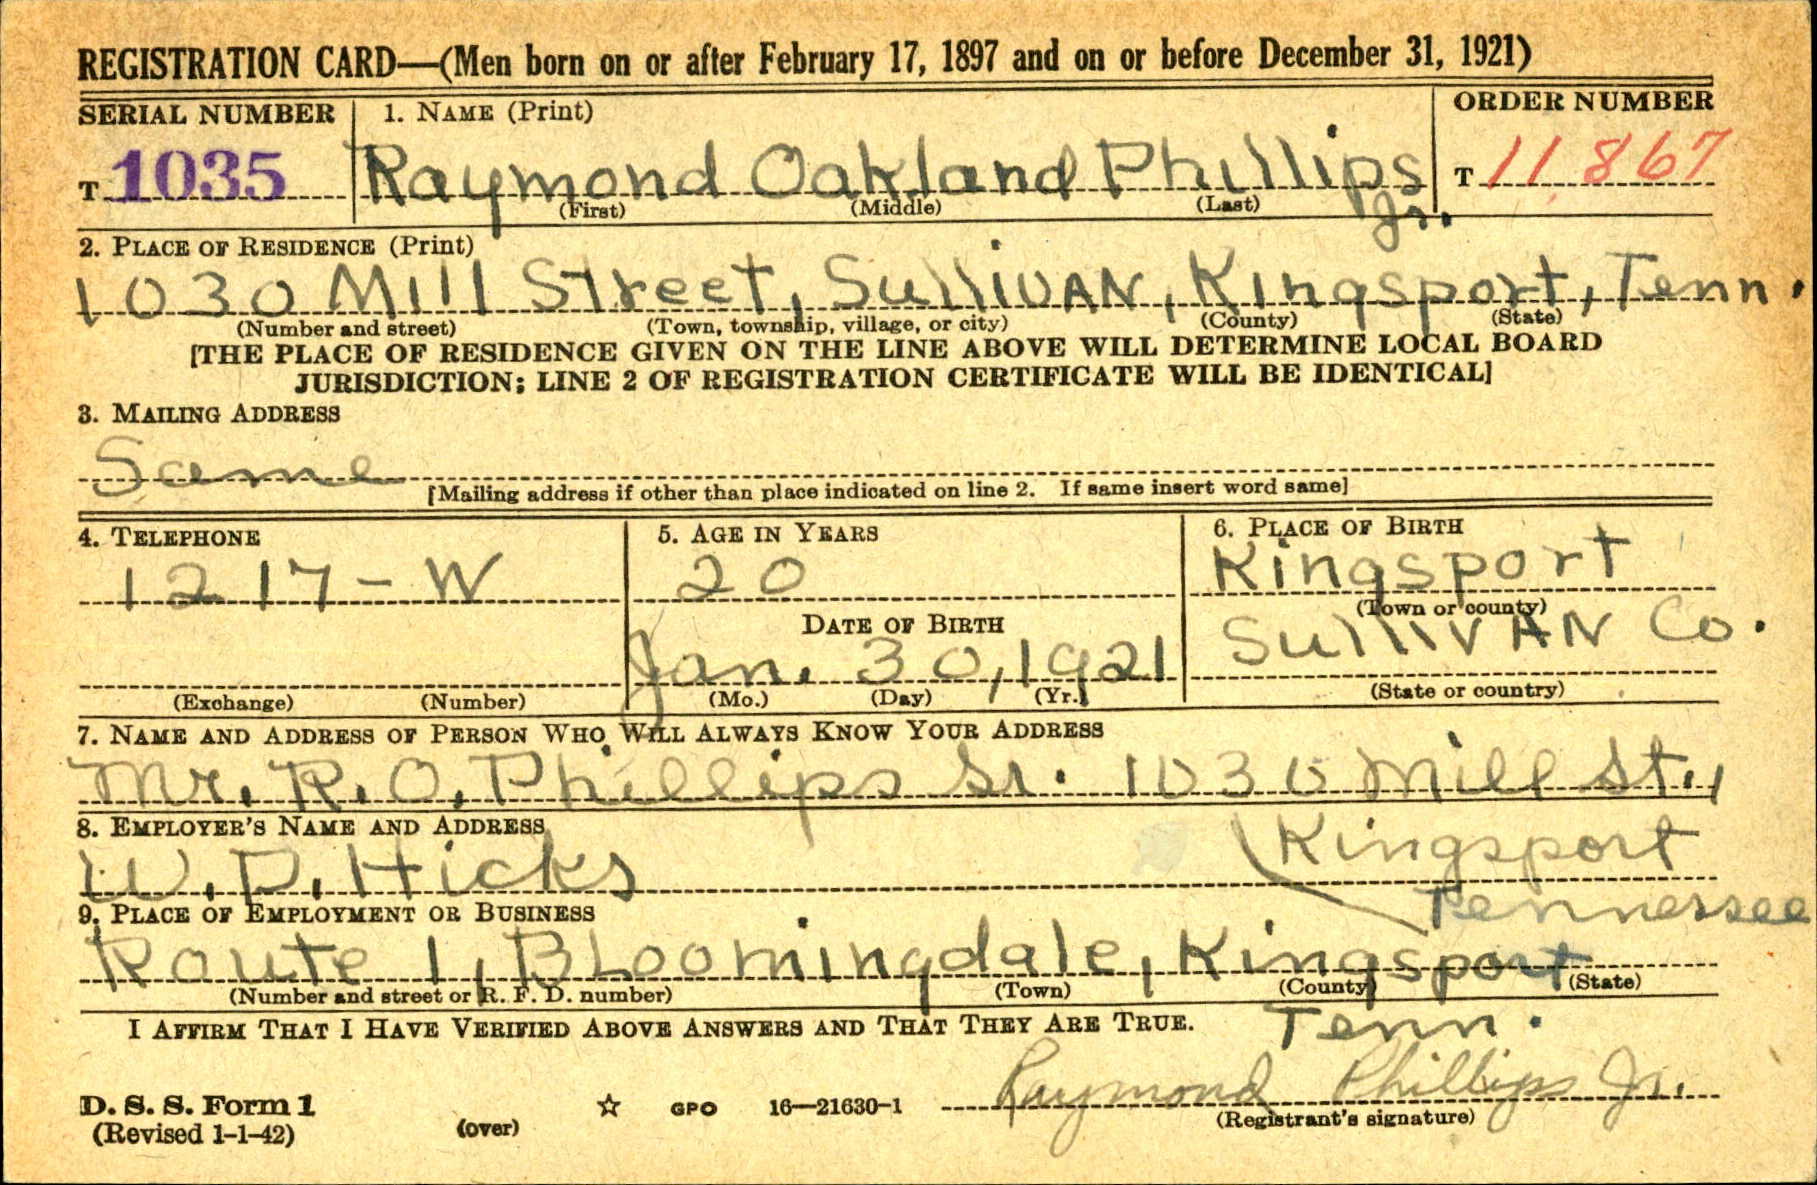 REGISTRATION CARD—(Men born on or after February 17, 1897 and on or before December 31, 1921)
SERIAL NUMBER
1. NAME (Print)
ORDER NUMBER
T 1035
Raymond Oakland Phillips Jr.
T 11867
(First) (Middle) (Last)
2. PLACE OF RESIDENCE (Print)
1030 Mill Street, SullivAN, Kingsport, Tenn.
(Number and street) (Town, township, village, or city) (County) (State)
[THE PLACE OF RESIDENCE GIVEN ON THE LINE ABOVE WILL DETERMINE LOCAL BOARD
JURISDICTION; LINE 2 OF REGISTRATION CERTIFICATE WILL BE IDENTICAL]
3. MAILING ADDRESS
Same
[Mailing address if other than place indicated on line 2. If same insert word same]
4. TELEPHONE
1217-W
(Exchange) (Number)
5. AGE IN YEARS
20
DATE OF BIRTH
Jan. 30, 1921
(Mo.) (Day) (Yr.)
6. PLACE OF BIRTH
Kingsport
(Town or county)
SullivAN Co.
(State or country)
7. NAME AND ADDRESS OF PERSON WHO WILL ALWAYS KNOW YOUR ADDRESS
Mr. R. O. Phillips Sr. 1030 Mill St.,
Kingsport
Tennessee
8. EMPLOYER'S NAME AND ADDRESS
W. D. Hicks
9. PLACE OF EMPLOYMENT OR BUSINESS
Route 1, Bloomingdale, Kingsport
Tenn.
(Number and street or R. F. D. number) (Town) (County) (State)
I AFFIRM THAT I HAVE VERIFIED ABOVE ANSWERS AND THAT THEY ARE TRUE.
Raymond Phillips Jr.
(Registrant's signature)
D. S. S. Form 1
(Revised 1-1-42)
(over)
☆ GPO 16—21630-1